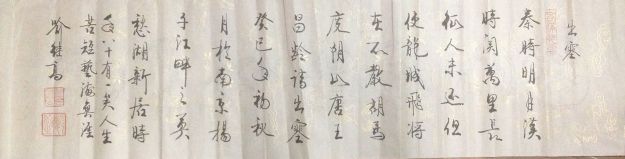 出塞
秦時明月漢
時關萬里長
征人未還但
使龍城飛將
在不教胡馬
度陰山唐王
昌齡詩出塞
癸巳年初秋
月於南京揚
子江畔之莫
愁湖新居時
年八十有一矣人生
苦短藝海無涯
喻继高